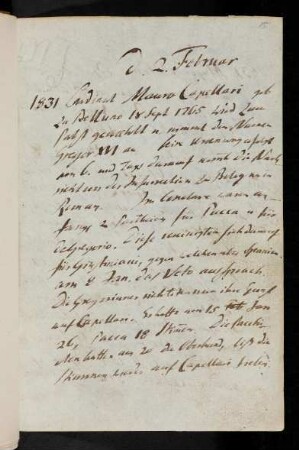 d. 2. Februar
1831 Cardinal Mauro Capellari geb
zu Belluno 18 Sept 1765 wird zum
Pabst gewählt u nimmt den Namen
Gregor XVI an
am 6. und Tags darauf kommt die Nach
richt von der Insurrection zu Bologna in
Roman. Im Conclave waren an
fangs 2 Partheien für Pacca u für
deGregorio. Diese vereinigten sich dann
für Giustiniani, gegen welchen aber Spanien
am 9 Jan. das Veto aussprach.
Die Gregorianer richteten nun ihre Gunst
auf Capellari. Er hatte am 15 Jan
26, Pacca 18 Stimmen.
hatte am 20 die Oberhand,
Stimmen auf Capellari